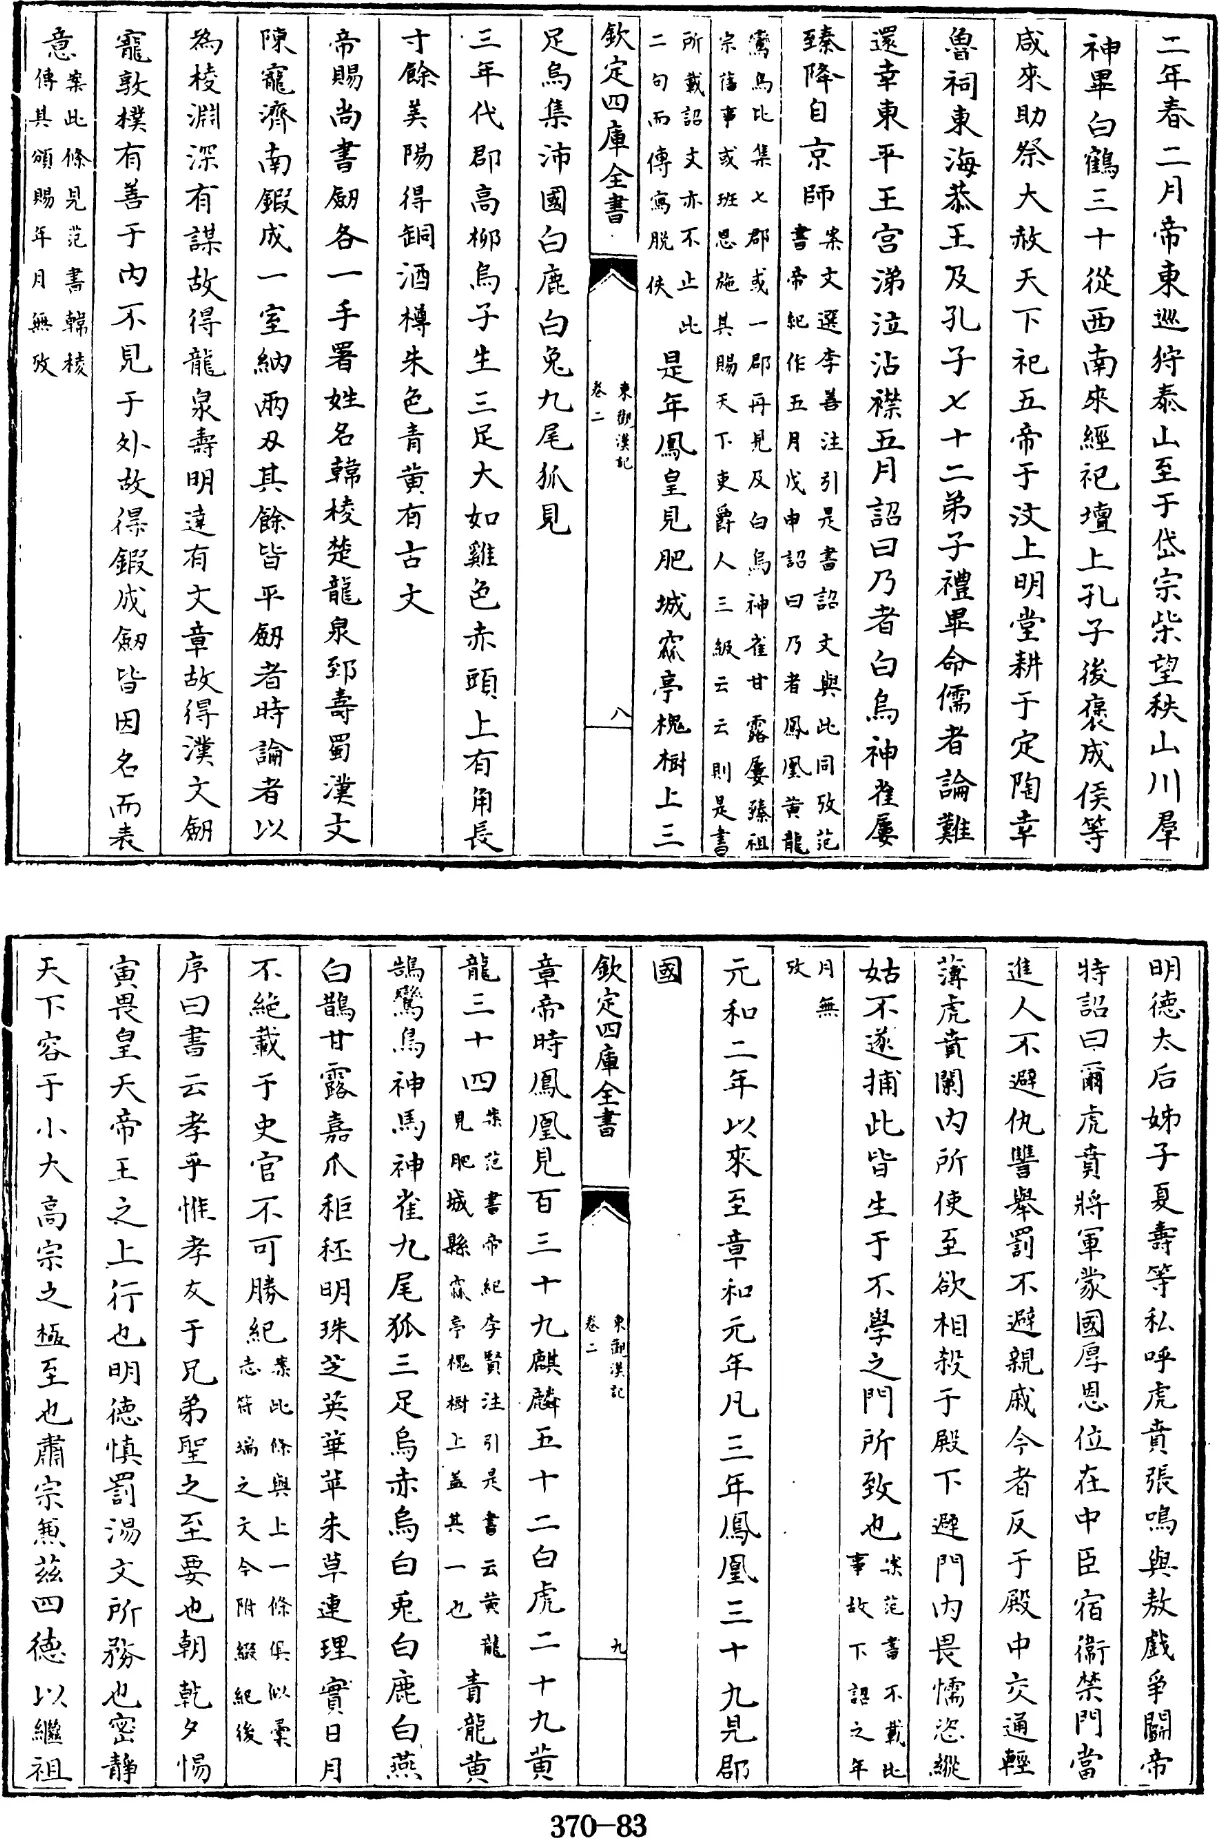 二年春二月帝東巡狩泰山至于岱宗柴望秩山川羣
神畢白鶴三十從西南來經祀壇上孔子後襃成侯等
咸來助祭大赦天下祀五帝于汶上明堂耕于定陶幸
魯祠東海恭王及孔子七十二弟子禮畢命儒者論難
還幸東平王宮涕泣沾襟五月詔曰乃者白烏神雀屢
臻降自京師案文選李善注引是書詔文與此同攷范
書帝紀作五月戊申詔曰乃者鳳凰黃龍
鸞鳥比集七郡或一郡再見及白烏神雀甘露屢臻祖
宗舊事或班恩施其賜天下吏爵人三級云云則是書
所載詔文亦不止此
二句而傳寫脫佚是年鳳皇見肥城窳亭槐樹上三
欽定四庫全書
東觀漢記
卷二
八
足烏集沛國白鹿白兔九尾狐見
三年代郡高柳烏子生三足大如雞色赤頭上有角長
寸餘美陽得銅酒樽朱色青黃有古文
帝賜尚書劒各一手署姓名韓棱楚龍泉郅壽蜀漢文
陳寵濟南鍛成一室納兩刃其餘皆平劒者時論者以
為棱淵深有謀故得龍泉壽明達有文章故得漢文劒
寵敦樸有善于內不見于外故得鍛成劒皆因名而表
意案此條見范書韓棱
傳其頒賜年月無攷
明德太后姊子夏壽等私呼虎賁張鳴與敖戲爭鬭帝
特詔曰爾虎賁將軍蒙國厚恩位在中臣宿衞禁門當
進人不避仇讐舉罰不避親戚今者反于殿中交通輕
薄虎賁闌內所使至欲相殺于殿下避門內畏懦恣縱
姑不遂捕此皆生于不學之門所致也案范書不載此
事故下詔之年
月無
攷
元和二年以來至章和元年凡三年鳳凰三十九見郡
國
欽定四庫全書
東觀漢記
卷二
九
章帝時鳳凰見百三十九麒麟五十二白虎二十九黃
龍三十四案范書帝紀李賢注引是書云黃龍
見肥城縣窳亭槐樹上蓋其一也青龍黃
鵠鸞鳥神馬神雀九尾狐三足烏赤烏白兎白鹿白燕
白鵲甘露嘉瓜秬秠明珠芝英華苹朱草連理實日月
不絶載于史官不可勝紀案此條與上一條俱似彙
志符瑞之文今附綴紀後
序曰書云孝乎惟孝友于兄弟聖之至要也朝乾夕惕
寅畏皇天帝王之上行也明德慎罰湯文所務也密靜
天下容于小大高宗之極至也肅宗兼茲四德以繼祖
370-83